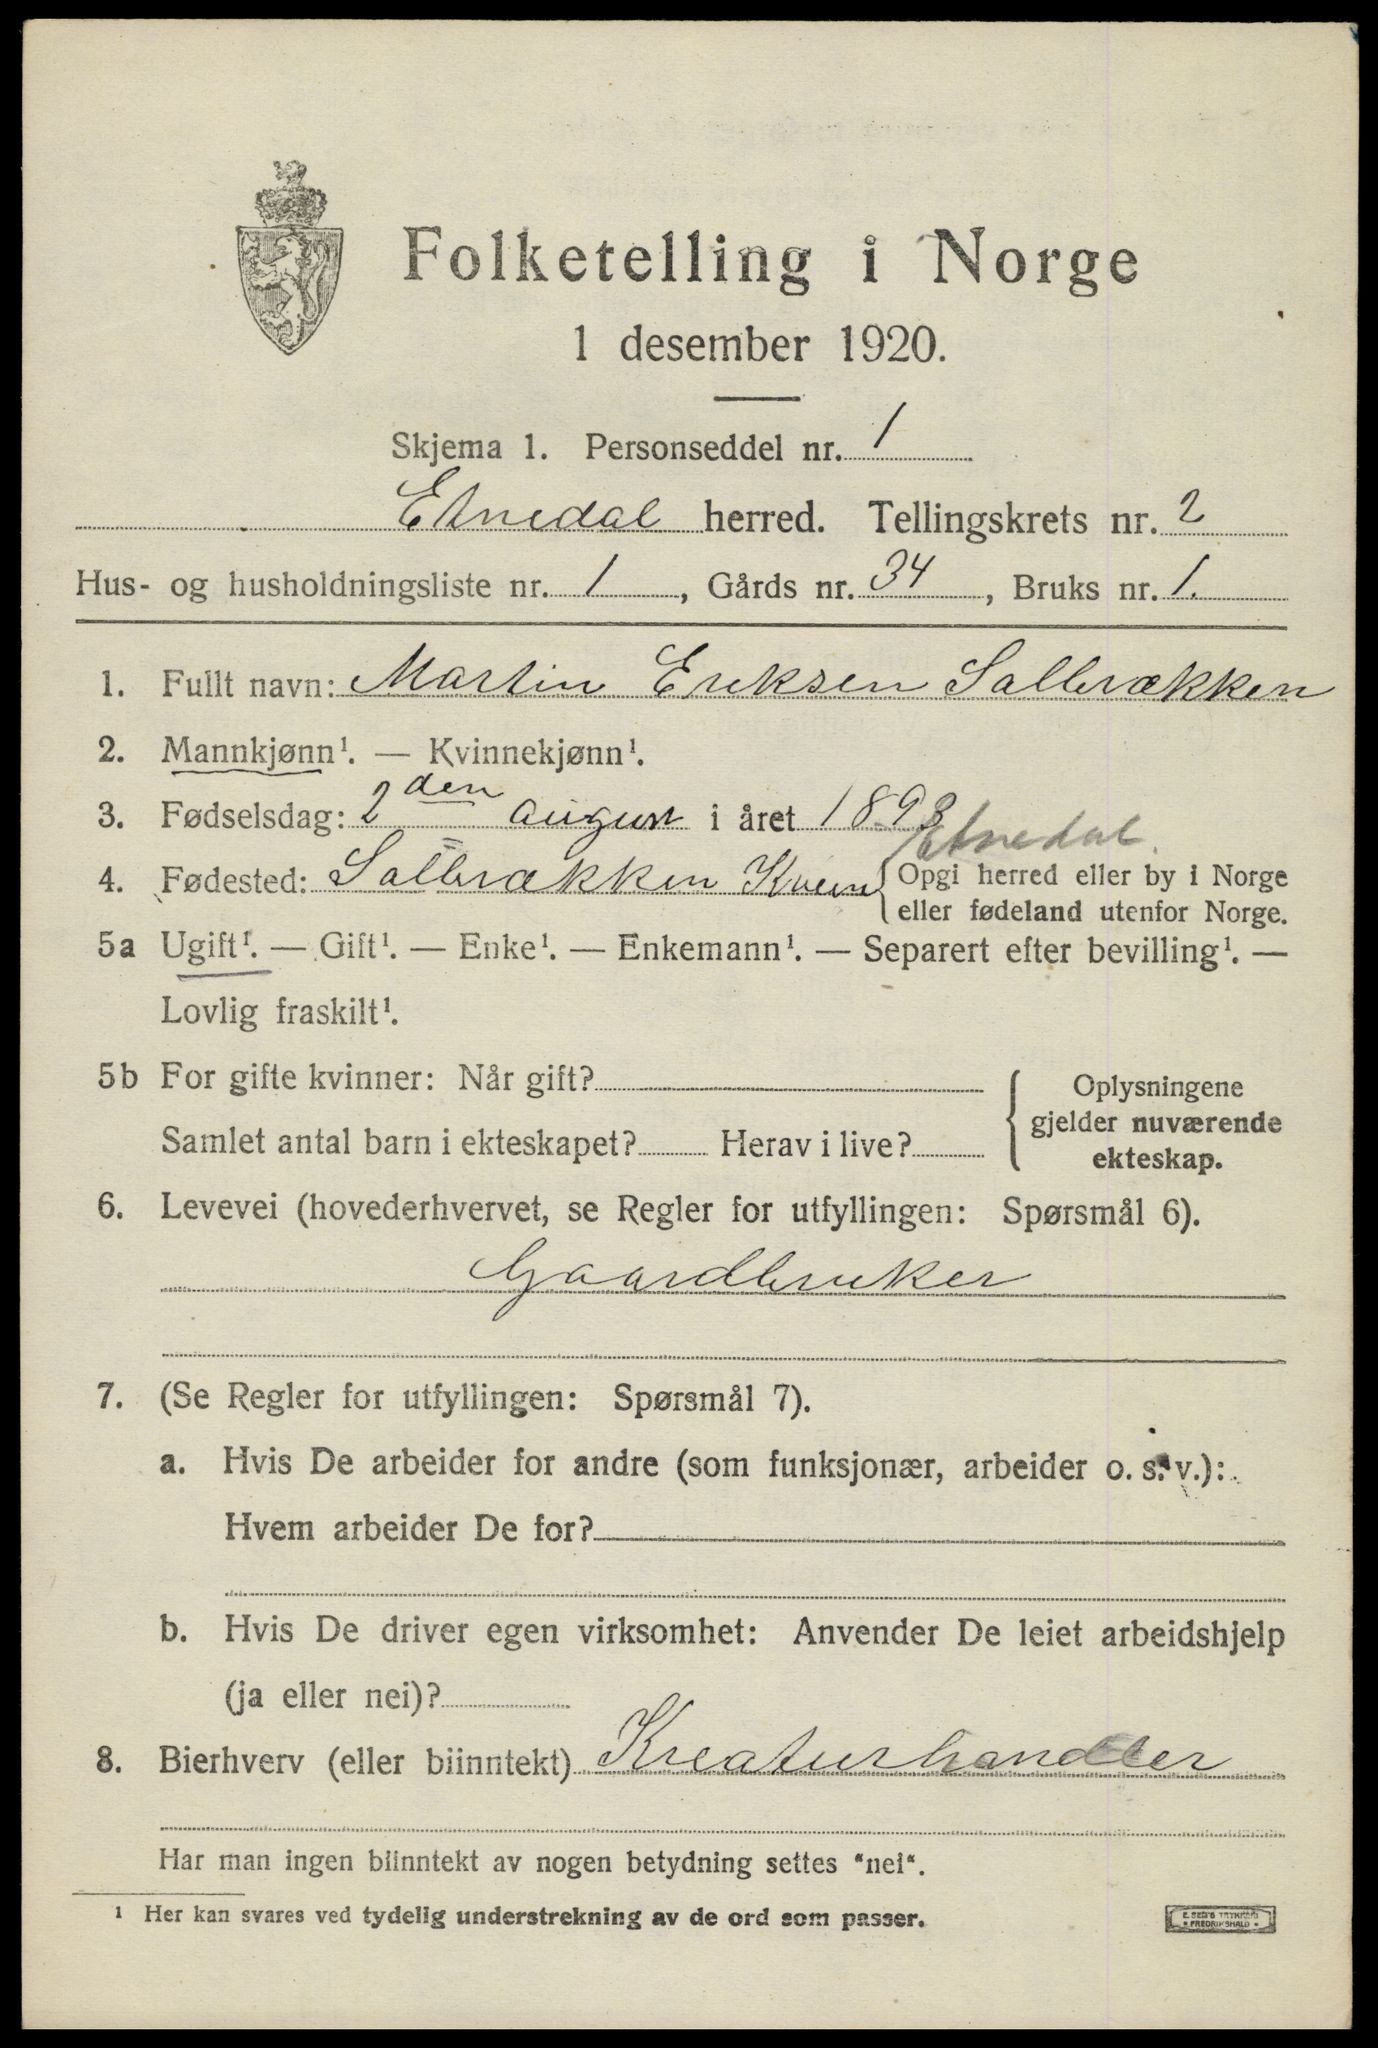 Folketelling i Norge
1 desember 1920.
Skjema 1. Personseddel nr. 1
Etnedal herred. Tellingskrets nr. 2
Hus- og husholdningsliste nr. 1, Gårds nr. 34, Bruks nr. 1.
1. Fullt navn: Martin Eriksen Salbrækken
2. Mannkjønn¹. — Kvinnekjønn¹.
3. Fødselsdag: 2den august i året 1893
Etnedal.
4. Fødested: Salbrækken Kvien {Opgi herred eller by i Norge
eller fødeland utenfor Norge.
5a Ugift¹. — Gift¹. — Enke¹. — Enkemann¹. — Separert efter bevilling¹. —
Lovlig fraskilt¹.
5b For gifte kvinner: Når gift?
Samlet antal barn i ekteskapet? Herav i live?
Oplysningene
gjelder nuværende
ekteskap.
6. Levevei (hovederhvervet, se Regler for utfyllingen: Spørsmål 6).
Gaardbruker
7. (Se Regler for utfyllingen: Spørsmål 7).
a. Hvis De arbeider for andre (som funksjonær, arbeider o. s. v.):
Hvem arbeider De for?
b. Hvis De driver egen virksomhet: Anvender De leiet arbeidshjelp
(ja eller nei)?
8. Bierhverv (eller biinntekt) Kreaturhandler
Har man ingen biinntekt av nogen betydning settes "nei".
¹ Her kan svares ved tydelig understrekning av de ord som passer.
E. SEM'S TRYKKERI
• FREDRIKSHALD •